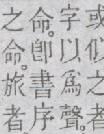 或似之者
字以爲聲。
命。卽書序
之命。旅者